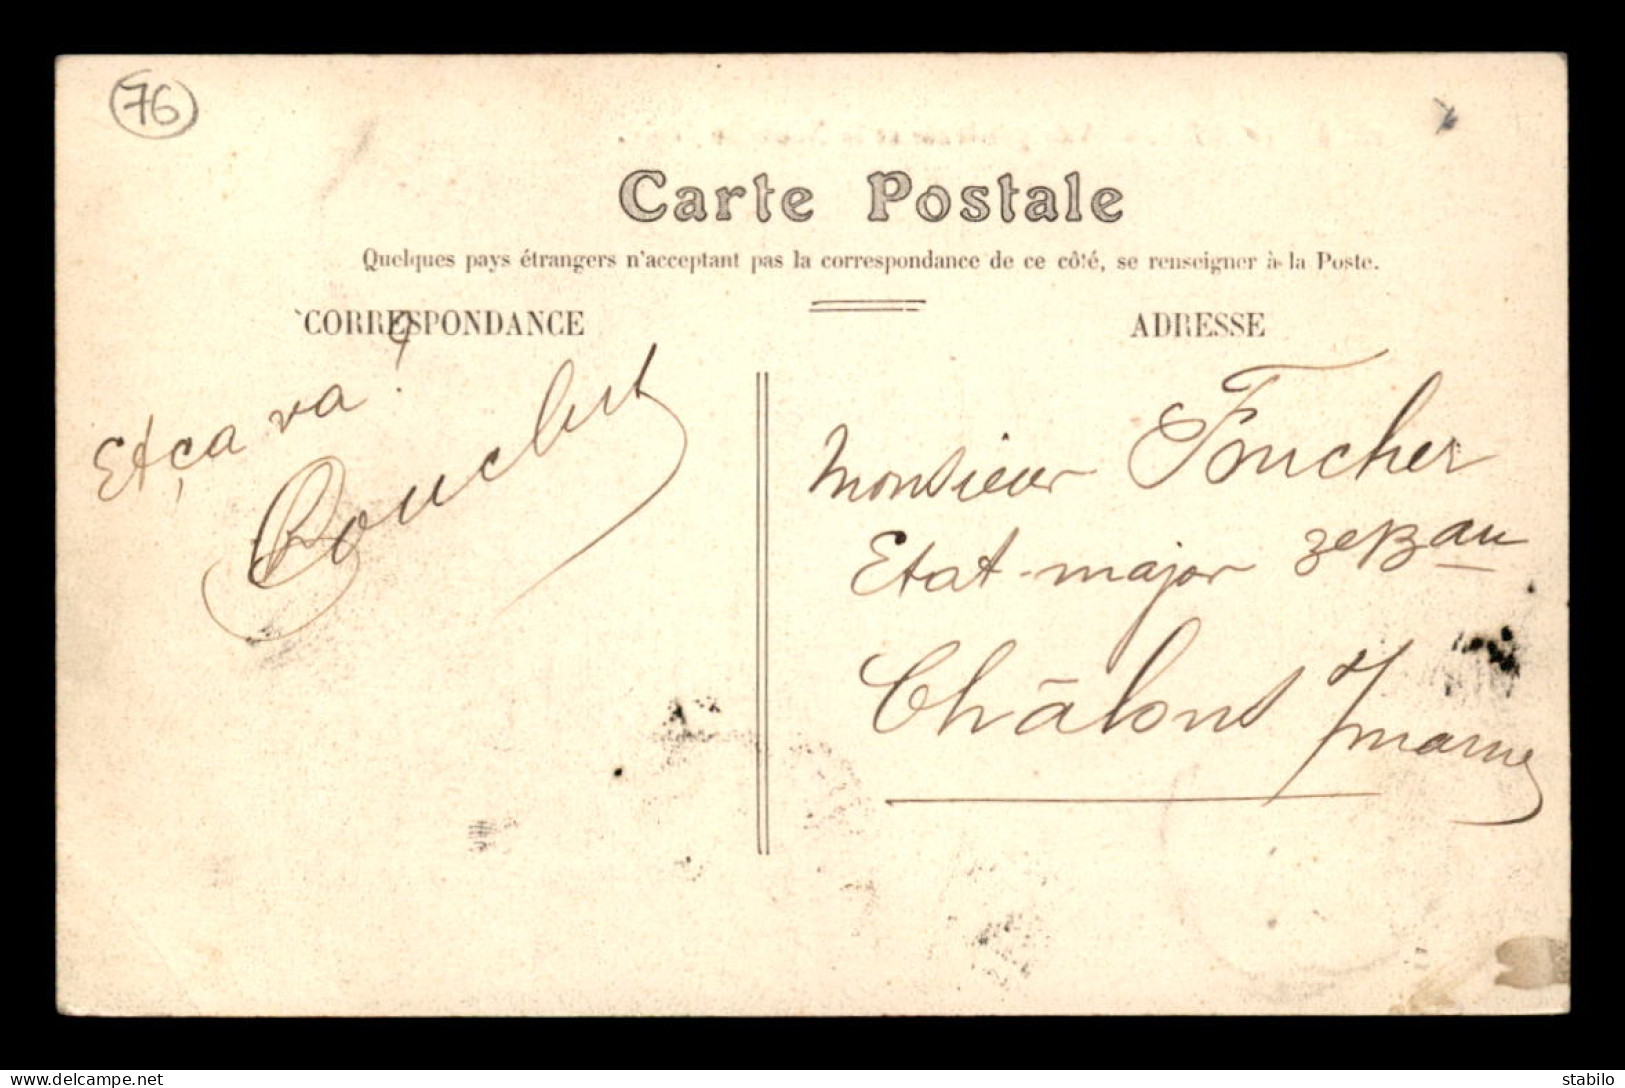 76
Carte Postale
Quelques pays étrangers n'acceptant pas la correspondance de ce côté, se renseigner à la Poste.
CORRESPONDANCE
ADRESSE
Et ça va ?
Monsieur Foucher
Etat-major
Châlons s/marne
stabilo